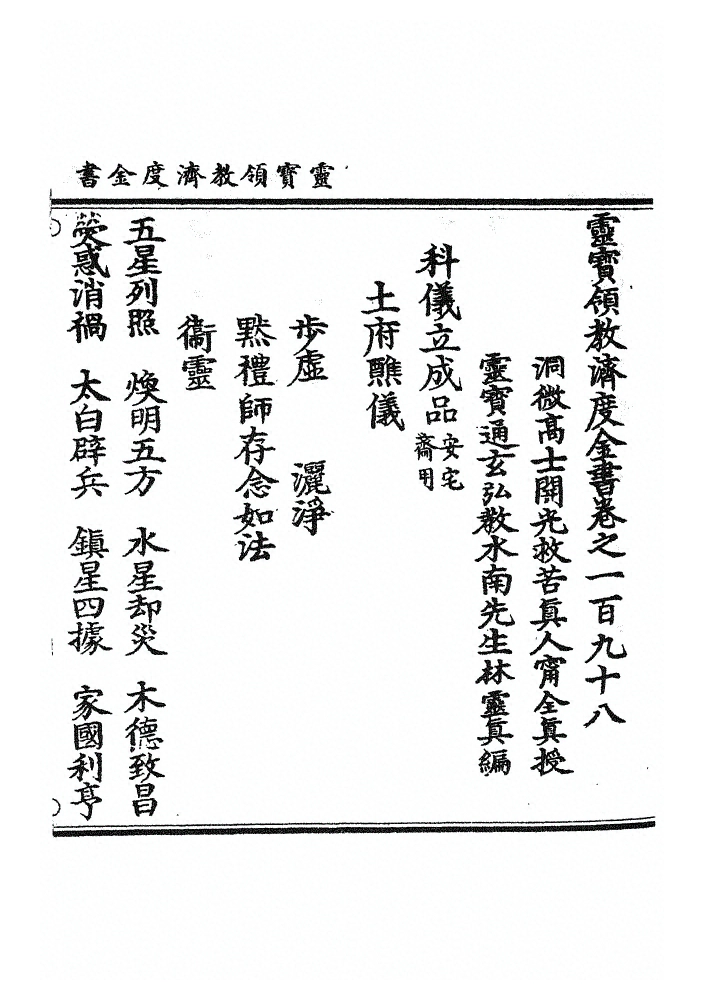 靈寶領教濟度金書
靈寶領教濟度金書卷之一百九十八
洞微高士開光救苦眞人甯全眞授
靈寶通玄弘教水南先生林靈眞編
科儀立成品 安宅齋用
土府醮儀
步虛 灑淨
默禮師存念如法
衞靈
五星列照 煥明五方 水星却災 木德致昌
熒惑消禍 太白辟兵 鎮星四據 家國利亨